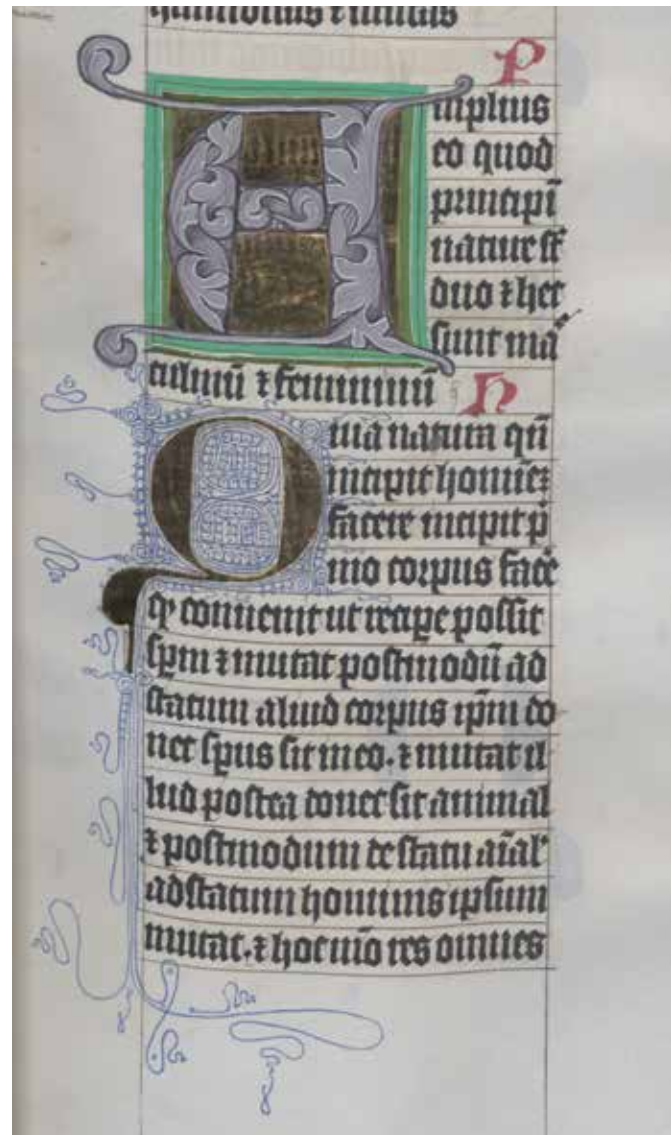 P
Amplius
eo quod
principī
nature st̄
duo ⁊ hec
sunt mas
culinū ⁊ femininū H
Quia natura qn̄
incipit homīeꝫ
facere incipit p̄
mo corpus facē
qꝫ conuenit ut recipe possit
spm ⁊ mutat postmodū ad
statum aliud corpus ipm̄ do
nec spus sit in eo. ⁊ mutat il
lud postea donec sit animal
⁊ postmodum de statu aīal'
ad statum hominis ipsum
mutat. ⁊ hoc mō res omnes